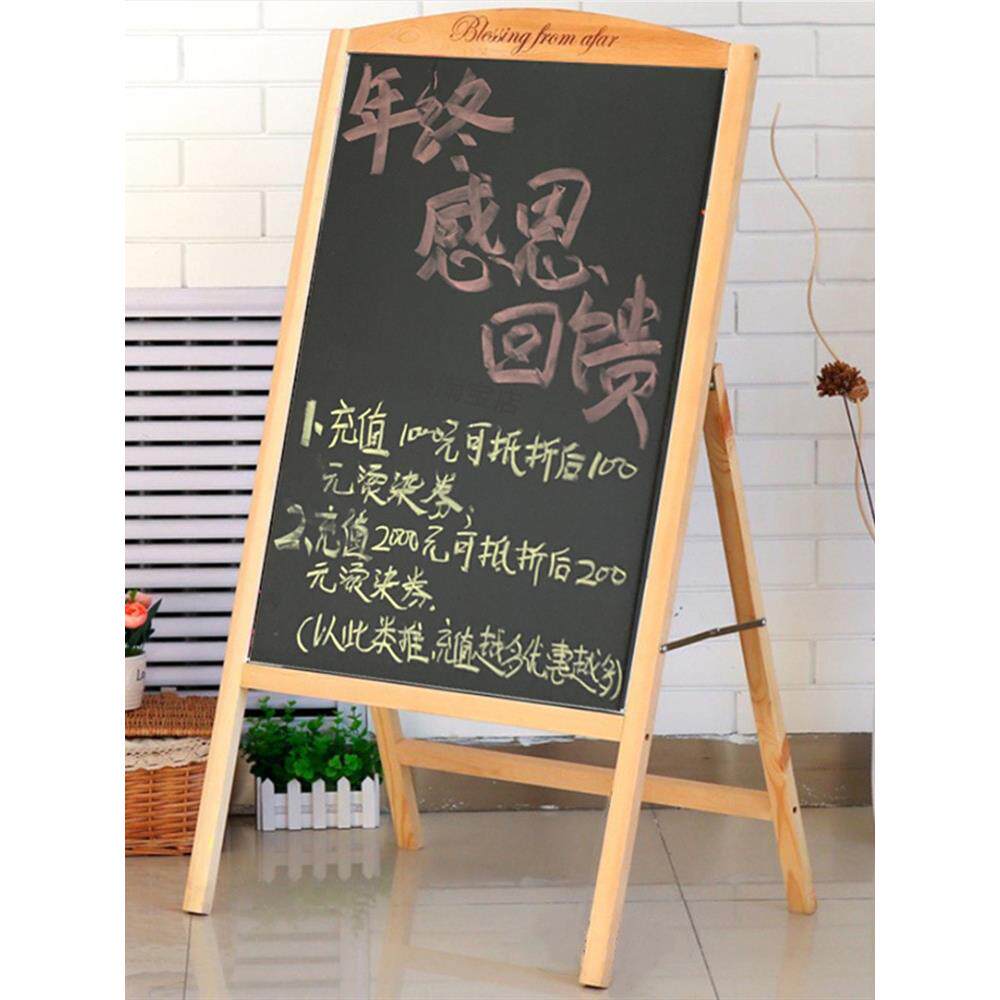 Blessing from afar
年终
感恩
回馈
1、充值1000元可抵折后100
元烫染券;
2、充值2000元可抵折后200
元烫染券.
(以此类推,充值越多优惠越多)